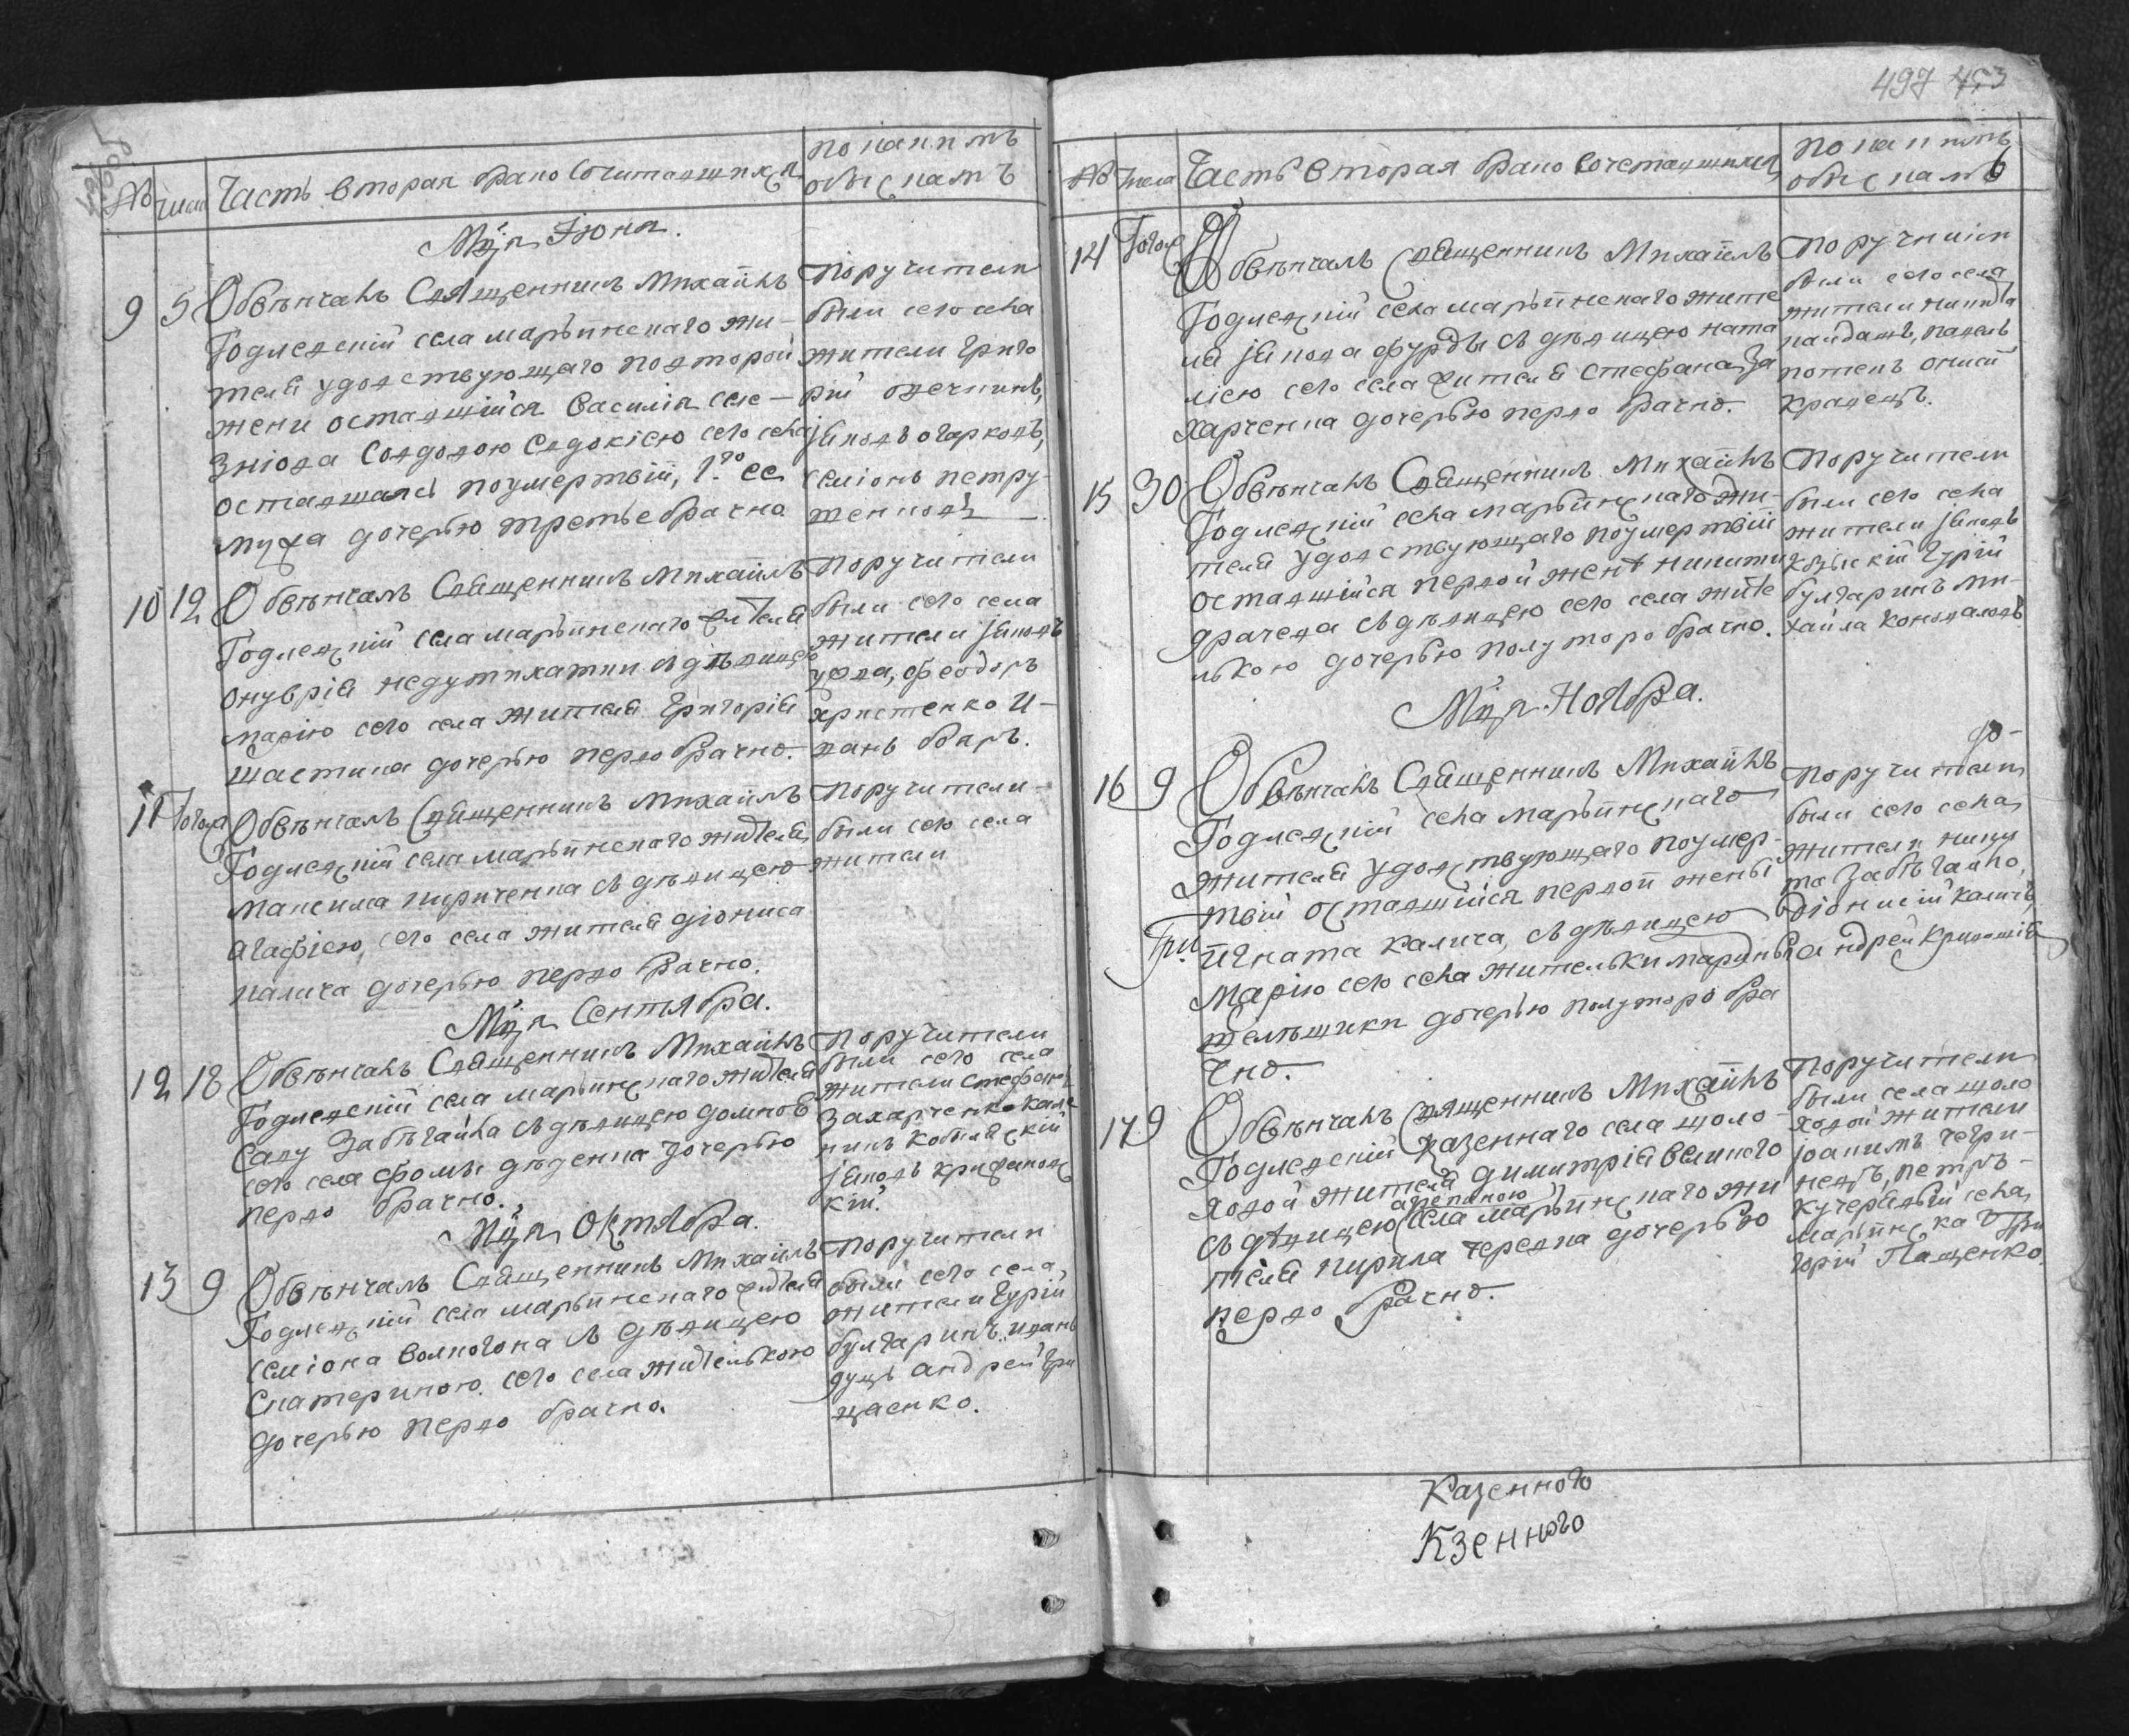 № Числа Часть вторая брако сочитавшихся По какимъ
обыскамъ
Мѣся Июня.
9 5 Обвѣнчалъ Священникъ Михаилъ
Годлевскій села марьинскаго жи-
теля удовствующаго по второй
жени оставшійся Василія селе-
Зніова Совдовою Евдокіею сего села
оставшаясь поумертвіи, 1го ее
мужа дочерью третьебрачно
Поручители
были сего села
жители Григо
рій
Яковъ огарковъ,
семіонъ петру
шенковъ
10 12 Обвѣнчалъ Священникъ Михаилъ
Годлевскій села марьинскаго жителя
онуврія съ дѣвицею
марию сего села жителя Григорія
шастика дочерью перво брачно.
Поручители
были сего села
жители Яковъ
феодоръ
христенко И-
ванъ
11 Тогож Обвѣнчалъ Священникъ Михаилъ
Годлевскій села марьинскаго жителя
максима кириченка съ дѣвицею
агафіею, сего села жителя діониса
калича дочерью перво брачно.
Поручители
были сего села
жители
Мѣся Сентября.
12 18 Обвѣнчалъ Священникъ Михаилъ
Годлевскій села марьинскаго жителя
Саву Забѣгайла съ дѣвицею домнов
сего села фомы дѣденка дочерью
перво брачно.
Поручители
были сего села
жители стефанъ
Захарченко кале
никъ кобиляскій
Яковъ
кій.
Мѣся Октября.
13 9 Обвѣнчалъ Священникъ Михаилъ
Годлевскій села марьинскаго жителя
семіона волкогона съ дѣвицею
Екатериною. сего села жителькою
дочерью перво брачно.
Поручители
были сего села
жители Гурій
булгаринъ, иванъ
дуць андрей гри
щенко.
497 453
№ Числа Часть вторая брако сочетавшихся По какимъ
обыскамъ
14 Тогож Обвѣнчалъ Священникъ Михаилъ
Годлевскій села марьинскаго жите
ля Якова фурды съ дѣвицею ната
ліею сего села жителя стефана За
харченка дочерью перво брачно.
Поручники
были сего села
жители никита
кайдашъ, павелъ
потекъ
кравецъ.
15 30 Обвѣнчалъ Священникъ Михаилъ
Годлевскій села марьинскаго жи-
теля удовствующаго поумертвій
оставшійся первой женѣ никиты
драчева съ дѣвицею сего села жите
лькою дочерью полуторо брачно.
Поручители
были сего села
жители Яковъ
Гурій
булгаринъ ми-
хайла коноваловъ
Мѣся Ноября.
16 9 Обвѣнчалъ Священникъ Михаилъ
Годлевскій села марьинскаго
жителя удовствующаго поумер-
твій оставшійся первой жены
Гри игната калича, съ дѣвицею
Марію сего села жительки марины
тельшики дочерью полуторо бра
чно.
Поручители
были сего села
жители ники
та Забѣгайло,
Діонисій каличъ,
андрей
17 9 Обвѣнчалъ Священникъ Михаилъ
Годлевскій казеннаго села щоло
ховой жителя димитрія великого
съ дѣвицею агрепиною села марьинскаго жи
теля кирила черевка дочерью
перво брачно.
Поручители
были села щоло
ховой жители
іоакимъ чегри-
невъ, петръ
кучерявый села
марьинска Гри
горій Пащенко.
Казенного
Кзенного